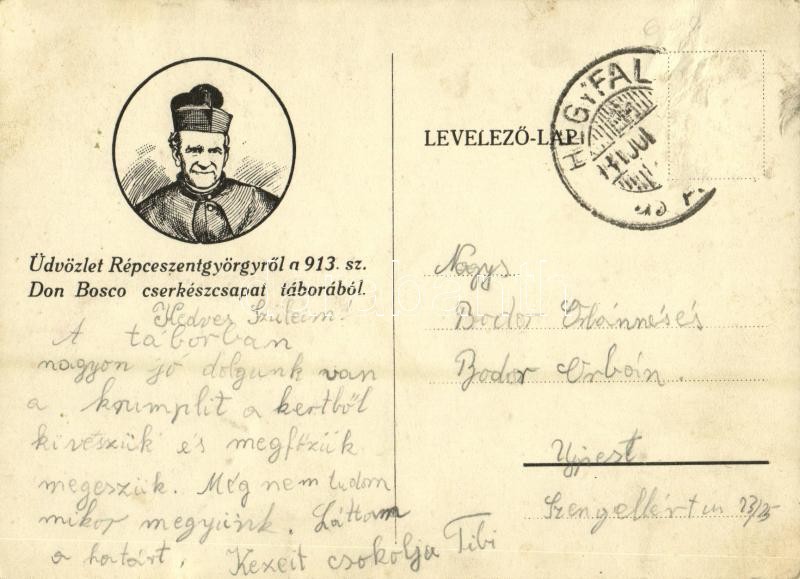 Üdvözlet Répceszentgyörgyről a 913. sz.
Don Bosco cserkészcsapat táborából.
Kedves Szüleim!
A táborban
nagyon jó dolgunk van
a krumplit a kertből
kivesszük és megfőzük
megeszük. Még nem tudom
mikor megyünk. Láttam
a határt. Kezeit csokolja Tibi
LEVELEZŐ-LAP
HEGYFAL
Nagys
Bodor Orbánné és
Bodor Orbán.
Ujpest
23/25